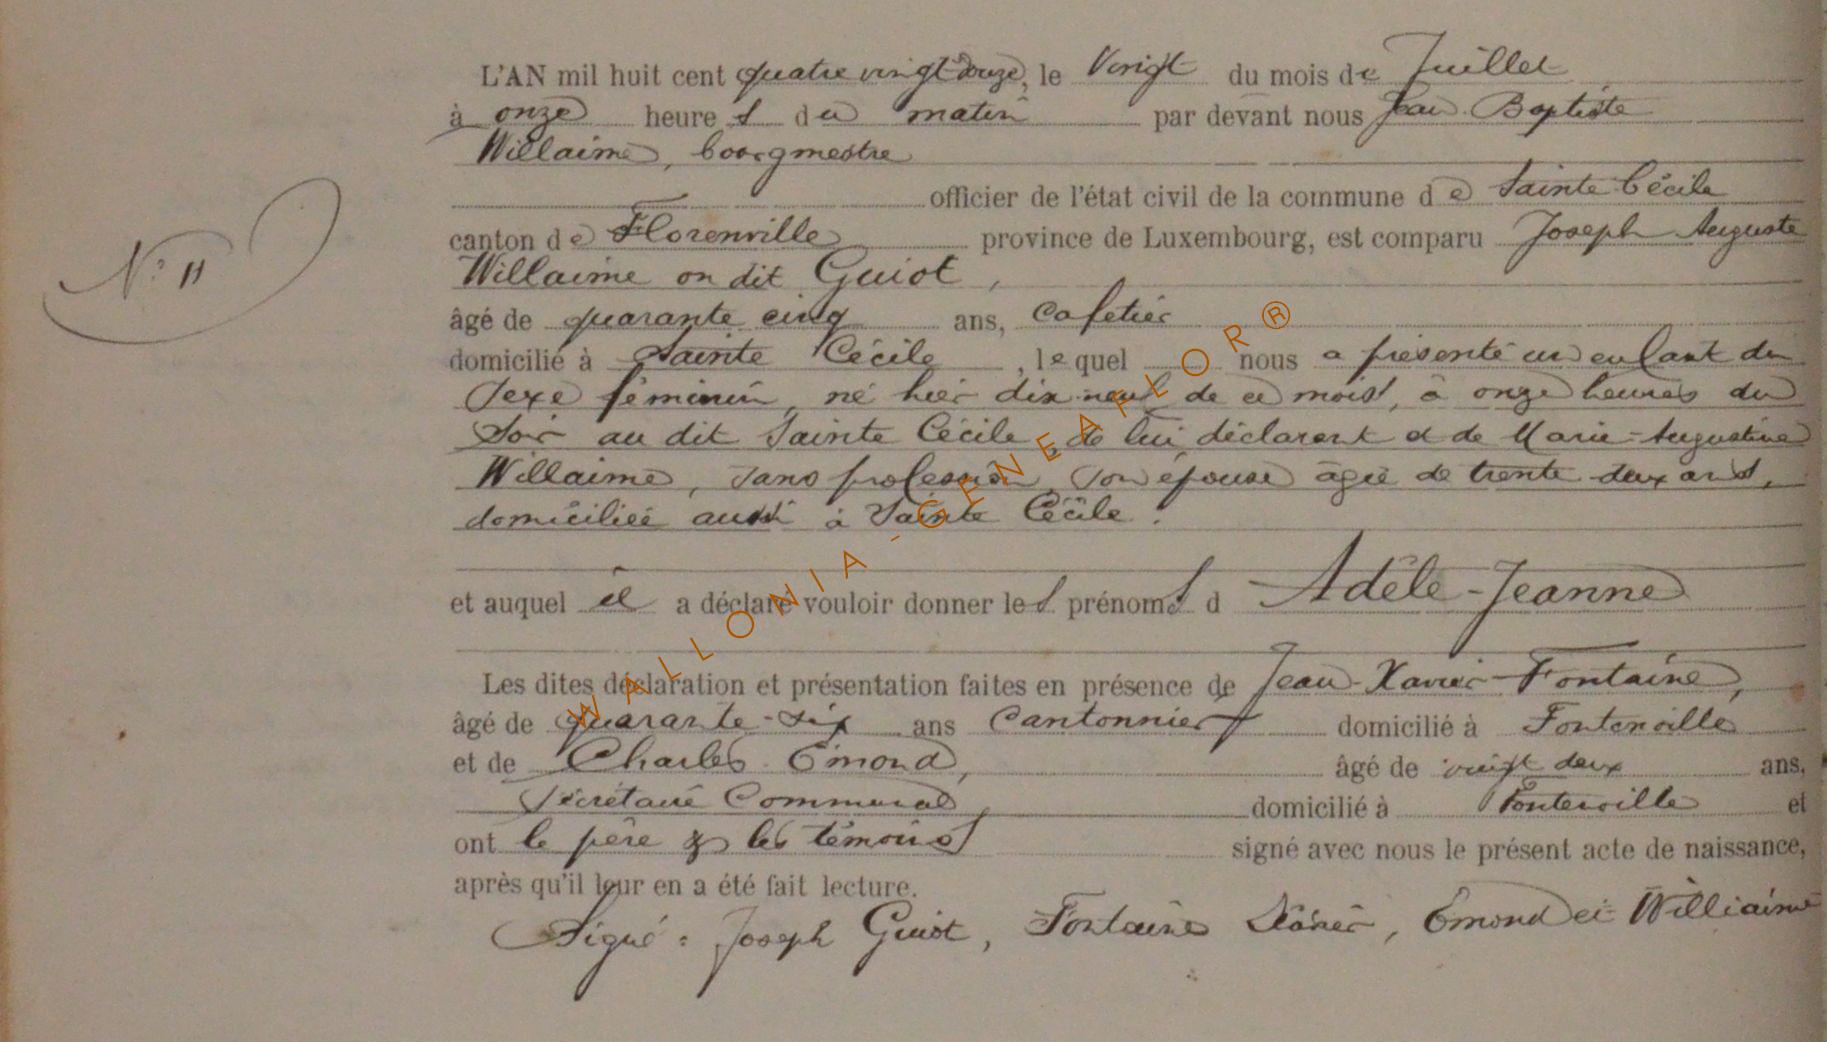 L'AN mil huit cent quatre vingt douze, le Vingt du mois de Juillet
à onze heures du matin par devant nous Jean Baptiste
Willaime, bourgmestre
officier de l'état civil de la commune de Sainte Cécile
canton de Florenville province de Luxembourg, est comparu Joseph Auguste
N° 11
Willaime on dit Guiot,
âgé de quarante cinq ans, cafetier
domicilié à Sainte Cécile, lequel nous a présenté un enfant du
sexe féminin, né hier dix neuf de ce mois, à onze heures du
soir au dit Sainte Cécile, de lui déclarant et de Marie-Augustine
Willaime, sans profession, son épouse âgée de trente deux ans,
domiciliée aussi à Sainte Cécile.
et auquel il a déclaré vouloir donner les prénoms d Adèle-Jeanne
Les dites déclaration et présentation faites en présence de Jean-Xavier-Fontaine,
âgé de quarante-six ans Cantonnier domicilié à Fontenoille
et de Charles Emond, âgé de vingt deux ans,
Secrétaire Communal domicilié à Fontenoille et
ont le père & les témoins signé avec nous le présent acte de naissance,
après qu'il leur en a été fait lecture.
Signé : Joseph Guiot, Fontaine, Emond et Williaime
WALLONIA-GENEAFLOR®